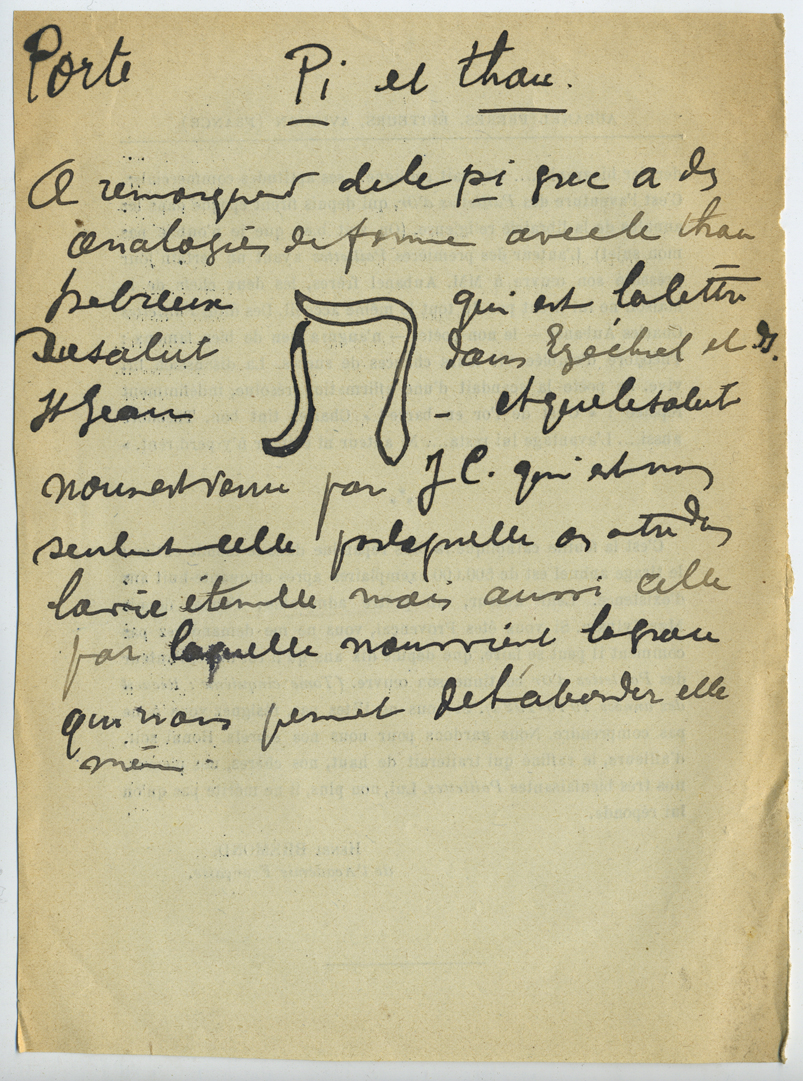 Porte
Pi et thau.
A remarquer de le pi grec a des
analogies de forme avec le thau
hebreux ת qui est la lettre
Du salut dans Ezéchiel et ds.
St Jean - et que le salut
nous est venu par J C. qui est non
seulement celle par laquelle on entre dans
la vie éternelle mais aussi celle
par laquelle nous vient la grace
qui nous permet de l'aborder elle
même